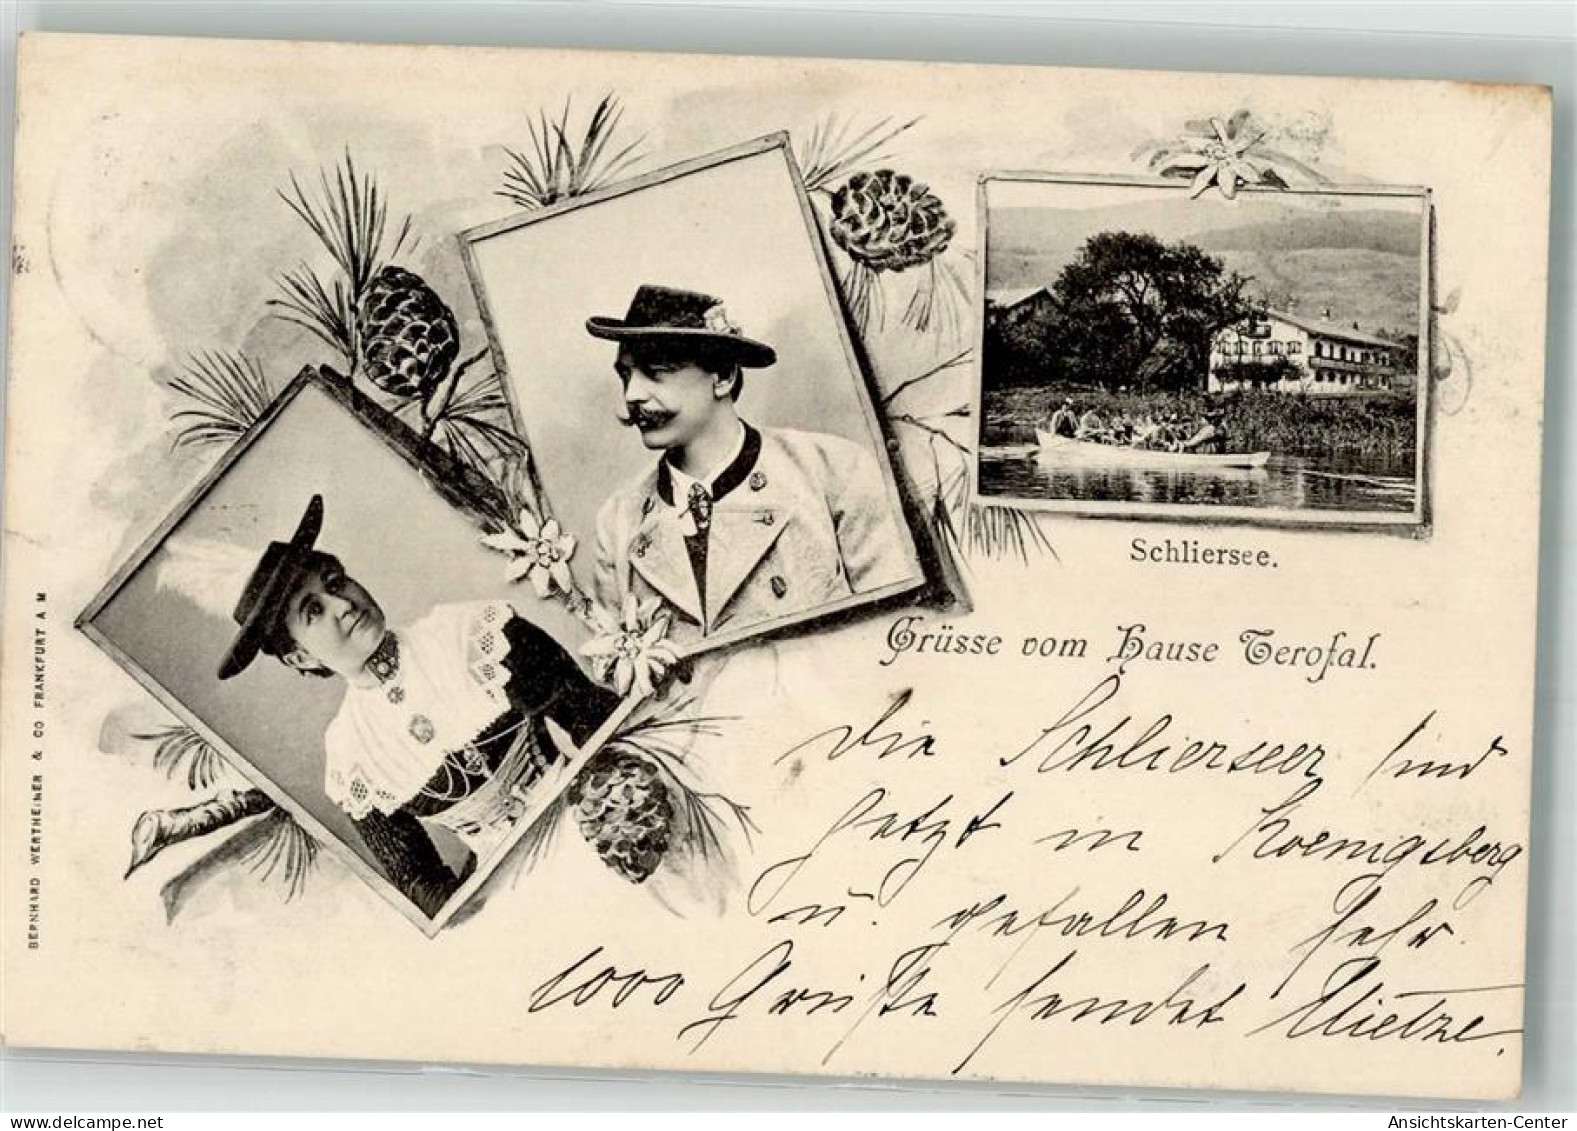 Schliersee.
Grüsse vom Hause Terofal.
Die Schlierseer sind
jetzt in Koenigsberg
u. gefallen sehr.
1000 Grüße sendet Mietze.
BERNHARD WERTHEIMER & CO FRANKFURT A M
delcampe.net
Ansichtskarten-Center